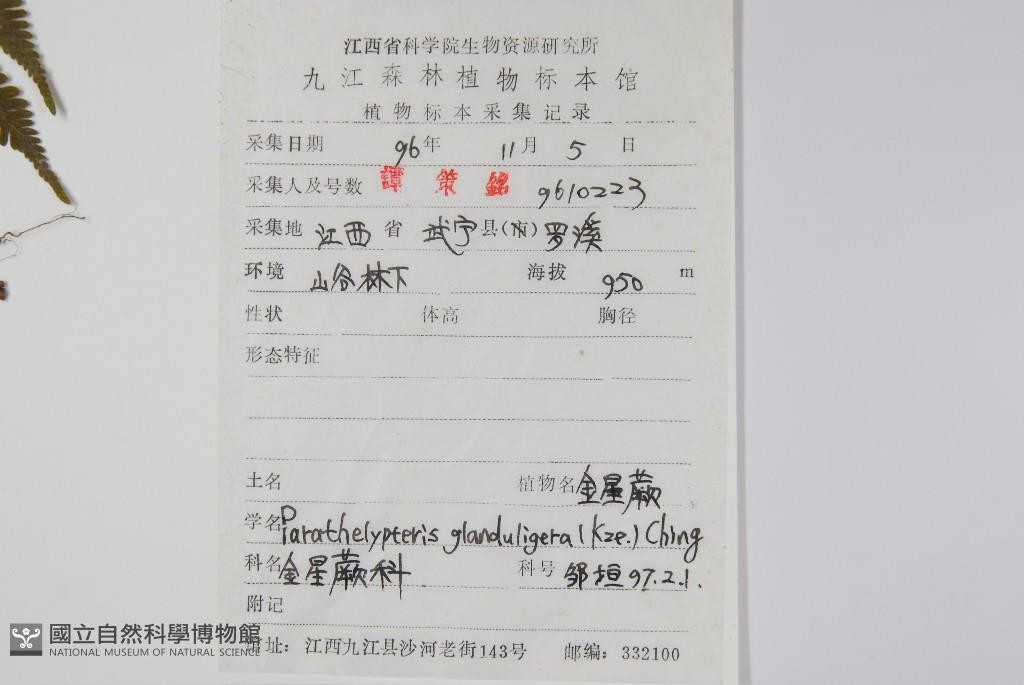 江西省科学院生物资源研究所
九江森林植物标本馆
植物标本采集记录
采集日期 96年 11月 5 日
采集人及号数 譚 策 銘 9610223
采集地 江西 省 武宁县(市) 罗溪
环境 山谷林下 海拔 950 m
性状 体高 胸径
形态特征
土名 植物名 金星蕨
学名 Parathelypteris glanduligera (Kze.) Ching
科名 金星蕨科 科号 邹垣 97.2.1.
附记
址: 江西九江县沙河老街143号 邮编: 332100
國立自然科學博物館
NATIONAL MUSEUM OF NATURAL SCIENCE